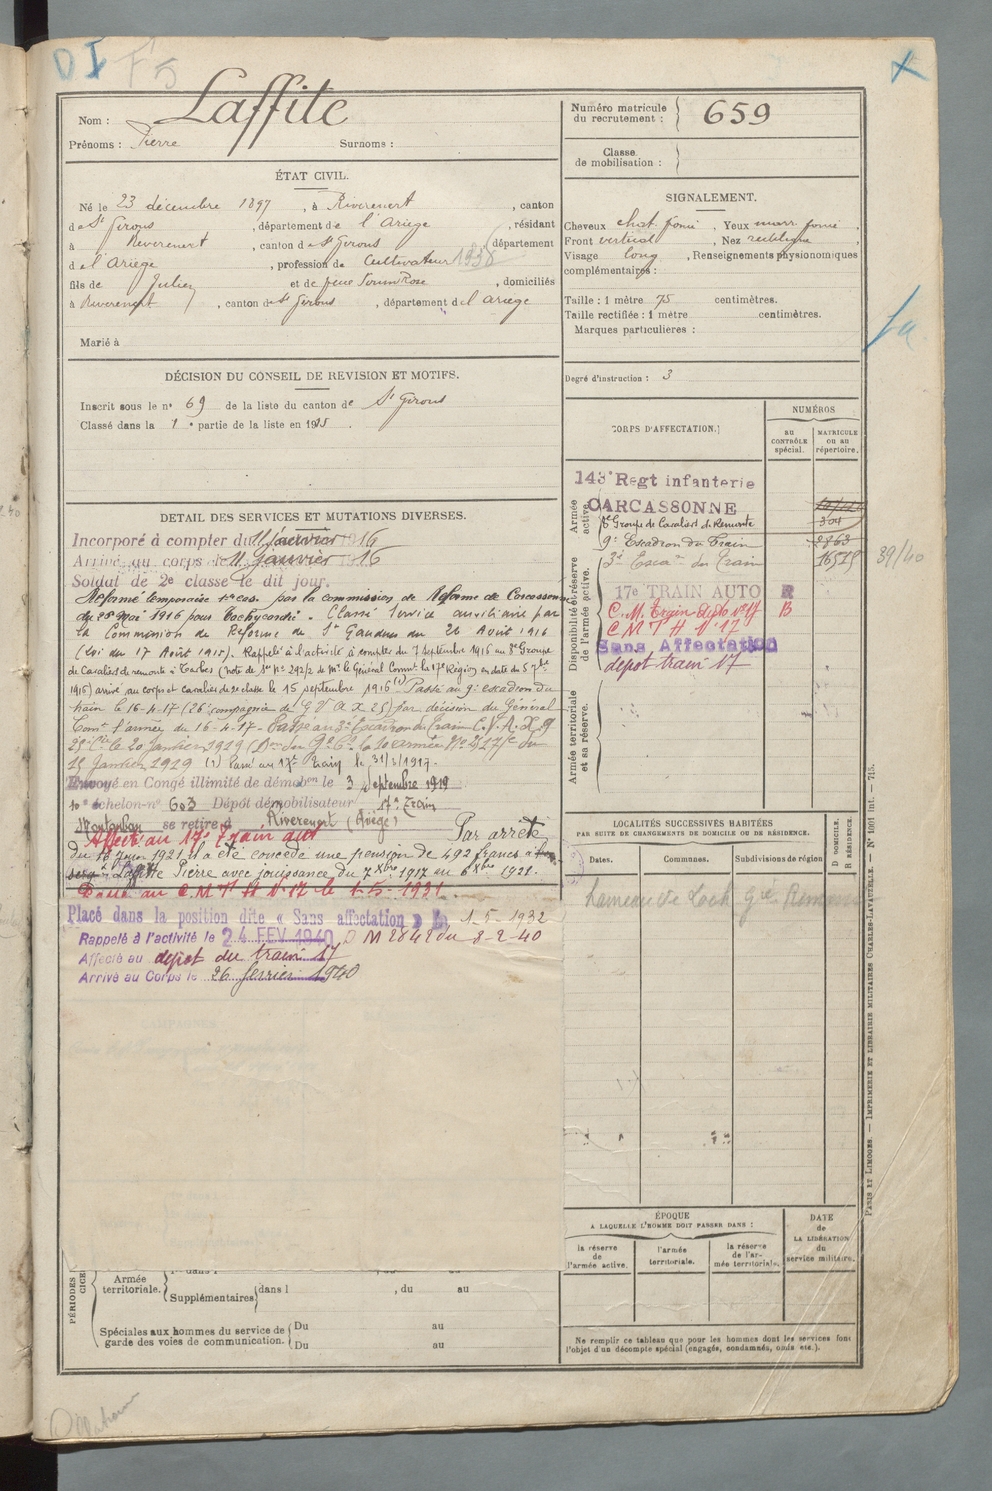 DI F5
Nom : Laffite
Prénoms : Pierre Surnoms :
Numéro matricule du recrutement : 659
Classe de mobilisation :
ÉTAT CIVIL.
Né le 23 décembre 1897, à Riverenert, canton
de St Girons, département de l'Ariège, résidant
à Riverenert, canton de St Girons, département
de l'Ariège, profession de Cultivateur 1938
fils de Julien et de feue Rose, domiciliés
à Riverenert, canton de St Girons, département de l'ariège
Marié à
DÉCISION DU CONSEIL DE REVISION ET MOTIFS.
Inscrit sous le n° 69 de la liste du canton de St Girons
Classé dans la 1e partie de la liste en 1915.
SIGNALEMENT.
Cheveux chat. foncé, Yeux marr foncé,
Front vertical, Nez rectiligne,
Visage long, Renseignements physionomiques
complémentaires :
Taille : 1 mètre 75 centimètres.
Taille rectifiée : 1 mètre centimètres.
Marques particulières :
Degré d'instruction : 3
CORPS D'AFFECTATION.
NUMÉROS
au CONTRÔLE spécial.
MATRICULE ou au répertoire.
Armée active.
143e Regt infanterie
CARCASSONNE
8e Groupe de Cavaliers de Remonte 304
9e Escadron du Train 2863
Disponibilité et réserve de l'armée active.
3e Escon du Train 16575 39/40
17e TRAIN AUTO R
C.M. Train auto N°17 B
C M T H N°17
Sans Affectation
depot train 17
Armée territoriale et sa réserve.
DETAIL DES SERVICES ET MUTATIONS DIVERSES.
Incorporé à compter du 11 janvier 1916
Arrivé au corps le 11 janvier 1916
Soldat de 2e classe le dit jour.
Réformé temporaire 1re cat. par la commission de Réforme de Carcassonne
du 28 Mai 1916 pour tachycardie. Classé service auxiliaire par
la Commission de Réforme de St Gaudens du 26 Août 1916
(Loi du 17 Août 1915). Rappelé à l'activité à compter du 7 septembre 1916 au 8e Groupe
de Cavaliers de remonte à Tarbes (note de Sce N° 292/2 de Mr le Général Commt la 17e Région en date du 5 7bre
1916) arrivé au corps et cavalier de 2e classe le 15 septembre 1916 (1) Passé au 9e escadron du
train le 16-4-17 (26e compagnie de G V A X 25) par décision du Général
Comt l'armée du 16-4-17 - Passé au 3e Escadron du Train C.V.A.X. 9
25e Cie le 20 Janvier 1919
15 Janvier 1919 (1) Passé au 17e Train le 31/3/1917.
Envoyé en Congé illimité de démobon le 3 Septembre 1919
10e échelon n° 603 Dépôt démobilisateur 17e Train
Montauban se retire à Riverenert (Ariège)
Affecté au 17e Train auto
Par arrêté
du 16 Juin 1921 il a été concédé une pension de 492 francs à
Laffite Pierre avec jouissance du 7 Xbre 1917 au 6 Xbre 1921.
Passé au C M T H N°17 le 1-5-1931
Placé dans la position dite « Sans affectation » le 1-5-1932
Rappelé à l'activité le 24 FEV 1940 D M 2842 du 8-2-40
Affecté au depot du train 17
Arrivé au Corps le 26 fevrier 1940
LOCALITÉS SUCCESSIVES HABITÉES
PAR SUITE DE CHANGEMENTS DE DOMICILE OU DE RÉSIDENCE.
Dates. Communes. Subdivisions de région
D DOMICILE. R RÉSIDENCE.
hameau de
ÉPOQUE
A LAQUELLE L'HOMME DOIT PASSER DANS :
la réserve de l'armée active.
l'armée territoriale.
la réserve de l'armée territoriale.
DATE de LA LIBÉRATION du service militaire.
Ne remplir ce tableau que pour les hommes dont les services font
l'objet d'un décompte spécial (engagés, condamnés, omis etc.).
PÉRIODES
Armée territoriale.
Supplémentaires dans l , du au
Spéciales aux hommes du service de garde des voies de communication.
Du au
Du au
PARIS ET LIMOGES. — IMPRIMERIE ET LIBRAIRIE MILITAIRES CHARLES-LAVAUZELLE. — N° 1001 Int. — 715.